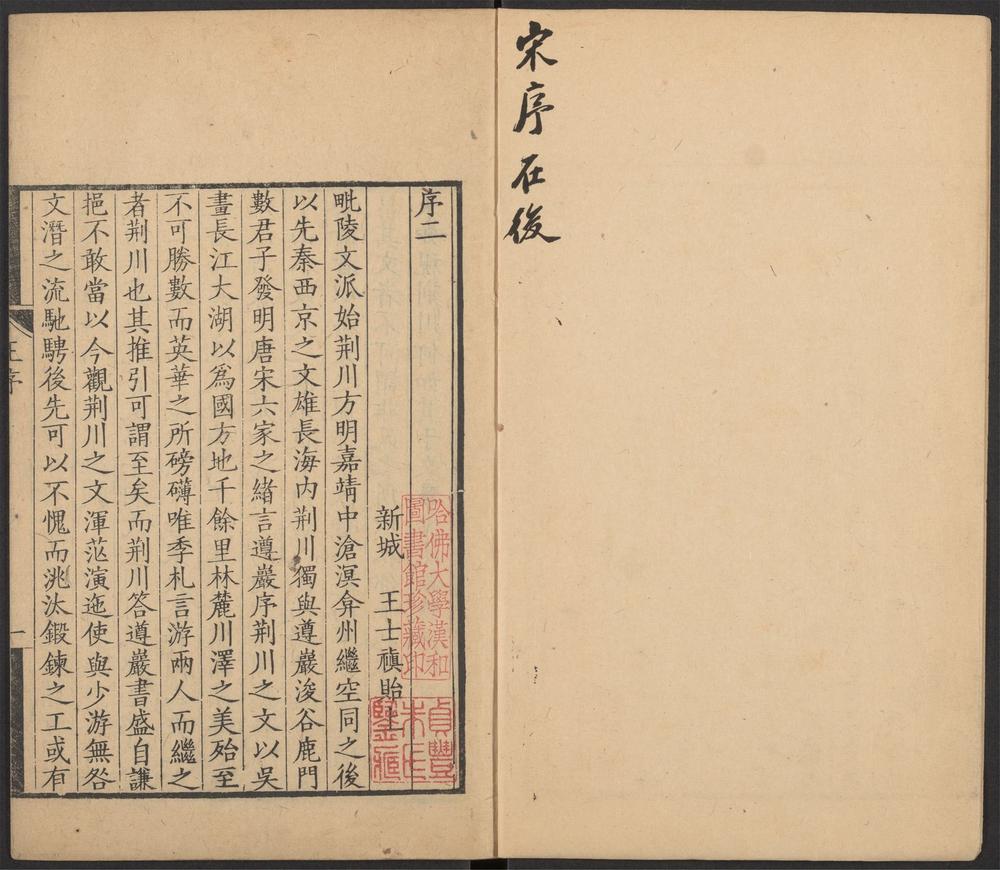 宋序在後
序二
新城 王士禛貽上
毗陵文派始荆川方明嘉靖中滄溟弇州繼空同之後
以先秦西京之文雄長海内荆川獨與遵巖浚谷鹿門
數君子發明唐宋六家之緒言遵巖序荆川之文以吳
畫長江大湖以爲國方地千餘里林麓川澤之美殆至
不可勝數而英華之所磅礴唯季札言游兩人而繼之
者荆川也其推引可謂至矣而荆川答遵巖書盛自謙
挹不敢當以今觀荆川之文渾涵演迤使與少游無咎
文潛之流馳騁後先可以不愧而洮汰鍛鍊之工或有
王序
一
哈佛大學漢和
圖書館珍藏印
貞豐
朱氏
鑒藏